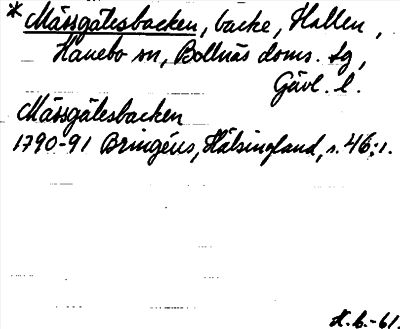 *Mässgälesbacken, backe, Hallen,
Hanebo sn, Bollnäs doms. tg,
Gävl. l.
Mässgälesbacken
1790-91 Bringéus, Hälsingland, s. 46:1.
H. b.-61.